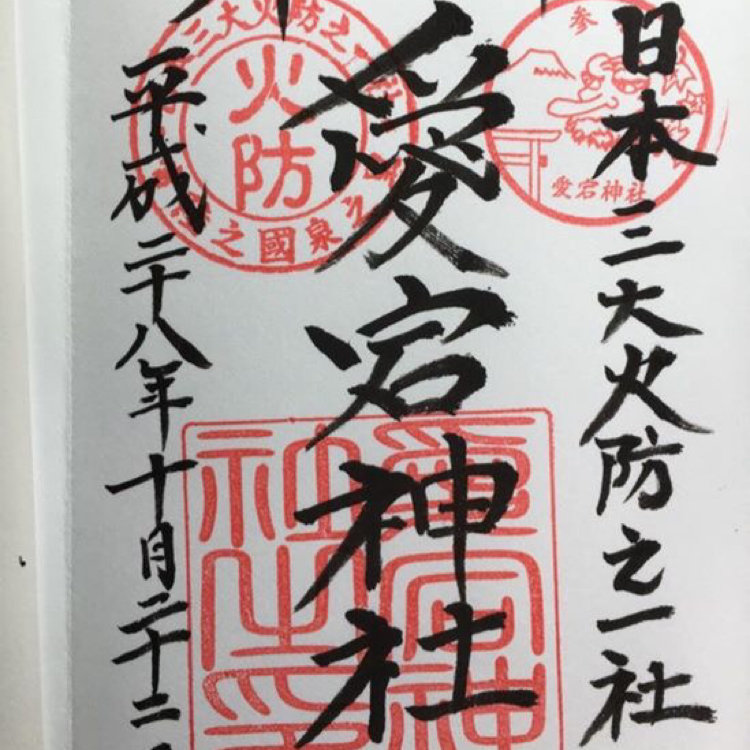 日本三大火防之一社
参
愛宕神社
愛宕神社
愛宕神社之印
三大火防之
火防
之國
平成二十八年十月二十二